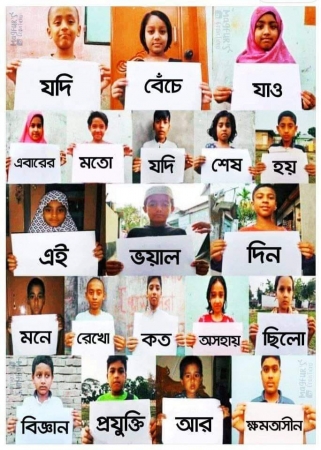 যদি বেঁচে যাও
এবারের মতো যদি শেষ হয়
এই ভয়াল দিন
মনে রেখো কত অসহায় ছিলো
বিজ্ঞান প্রযুক্তি আর ক্ষমতাসীন